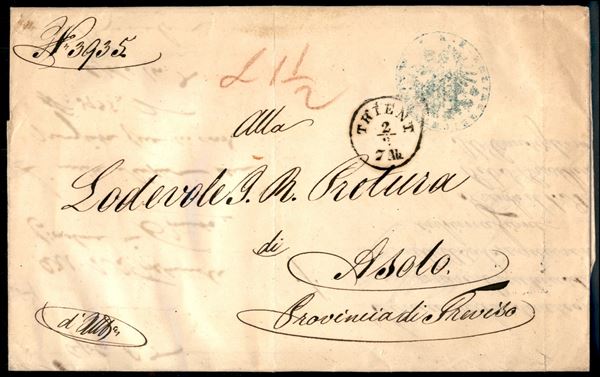 No 3935
L 1 1/2
TRIENT
2/
7 Ab
Alla
Lodevole I. R. Pretura
di
Asolo.
Provincia di Treviso
d'Uff.